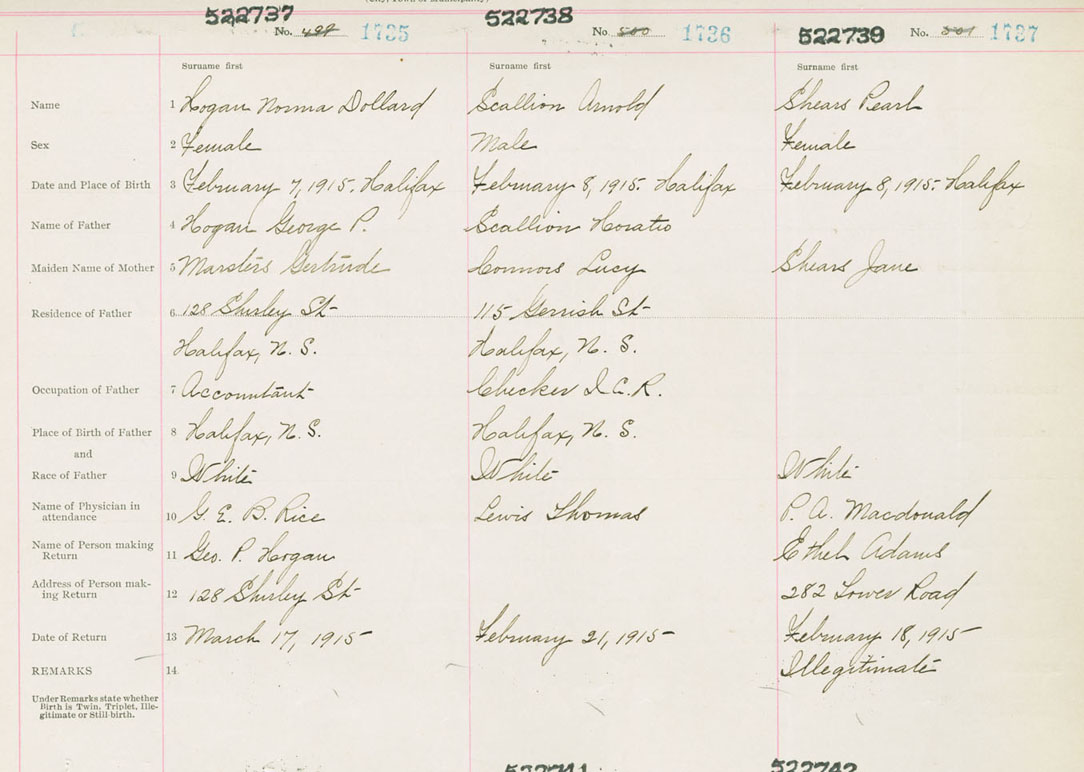 522737 522738
No. 499 1735 No 500 1736 522739 No. 501 1737
Surname first Surname first Surname first
Name 1 Hogan Norma Dollard Scallion Arnold Shears Pearl
Sex 2 Female Male Female
Date and Place of Birth 3 February 7, 1915. Halifax February 8, 1915. Halifax February 8, 1915. Halifax
Name of Father 4 Hogan George P. Scallion Horatio
Maiden Name of Mother 5 Marsters Gertrude Connors Lucy Shears Jane
Residence of Father 6 128 Shirley St 115 Gerrish St
Halifax, N. S. Halifax, N. S.
Occupation of Father 7 Accountant Checker I.C.R.
Place of Birth of Father 8 Halifax, N.S. Halifax, N. S.
and
Race of Father 9 White White White
Name of Physician in
attendance 10 G. E. B. Rice Lewis Thomas P. A. Macdonald
Name of Person making
Return 11 Geo. P. Hogan Ethel Adams
Address of Person mak-
ing Return 12 128 Shirley St 282 Lower Road
Date of Return 13 March 17, 1915 February 21, 1915 February 18, 1915
REMARKS 14 Illegitimate
Under Remarks state whether
Birth is Twin, Triplet, Ille-
gitimate or Still-birth.
522742